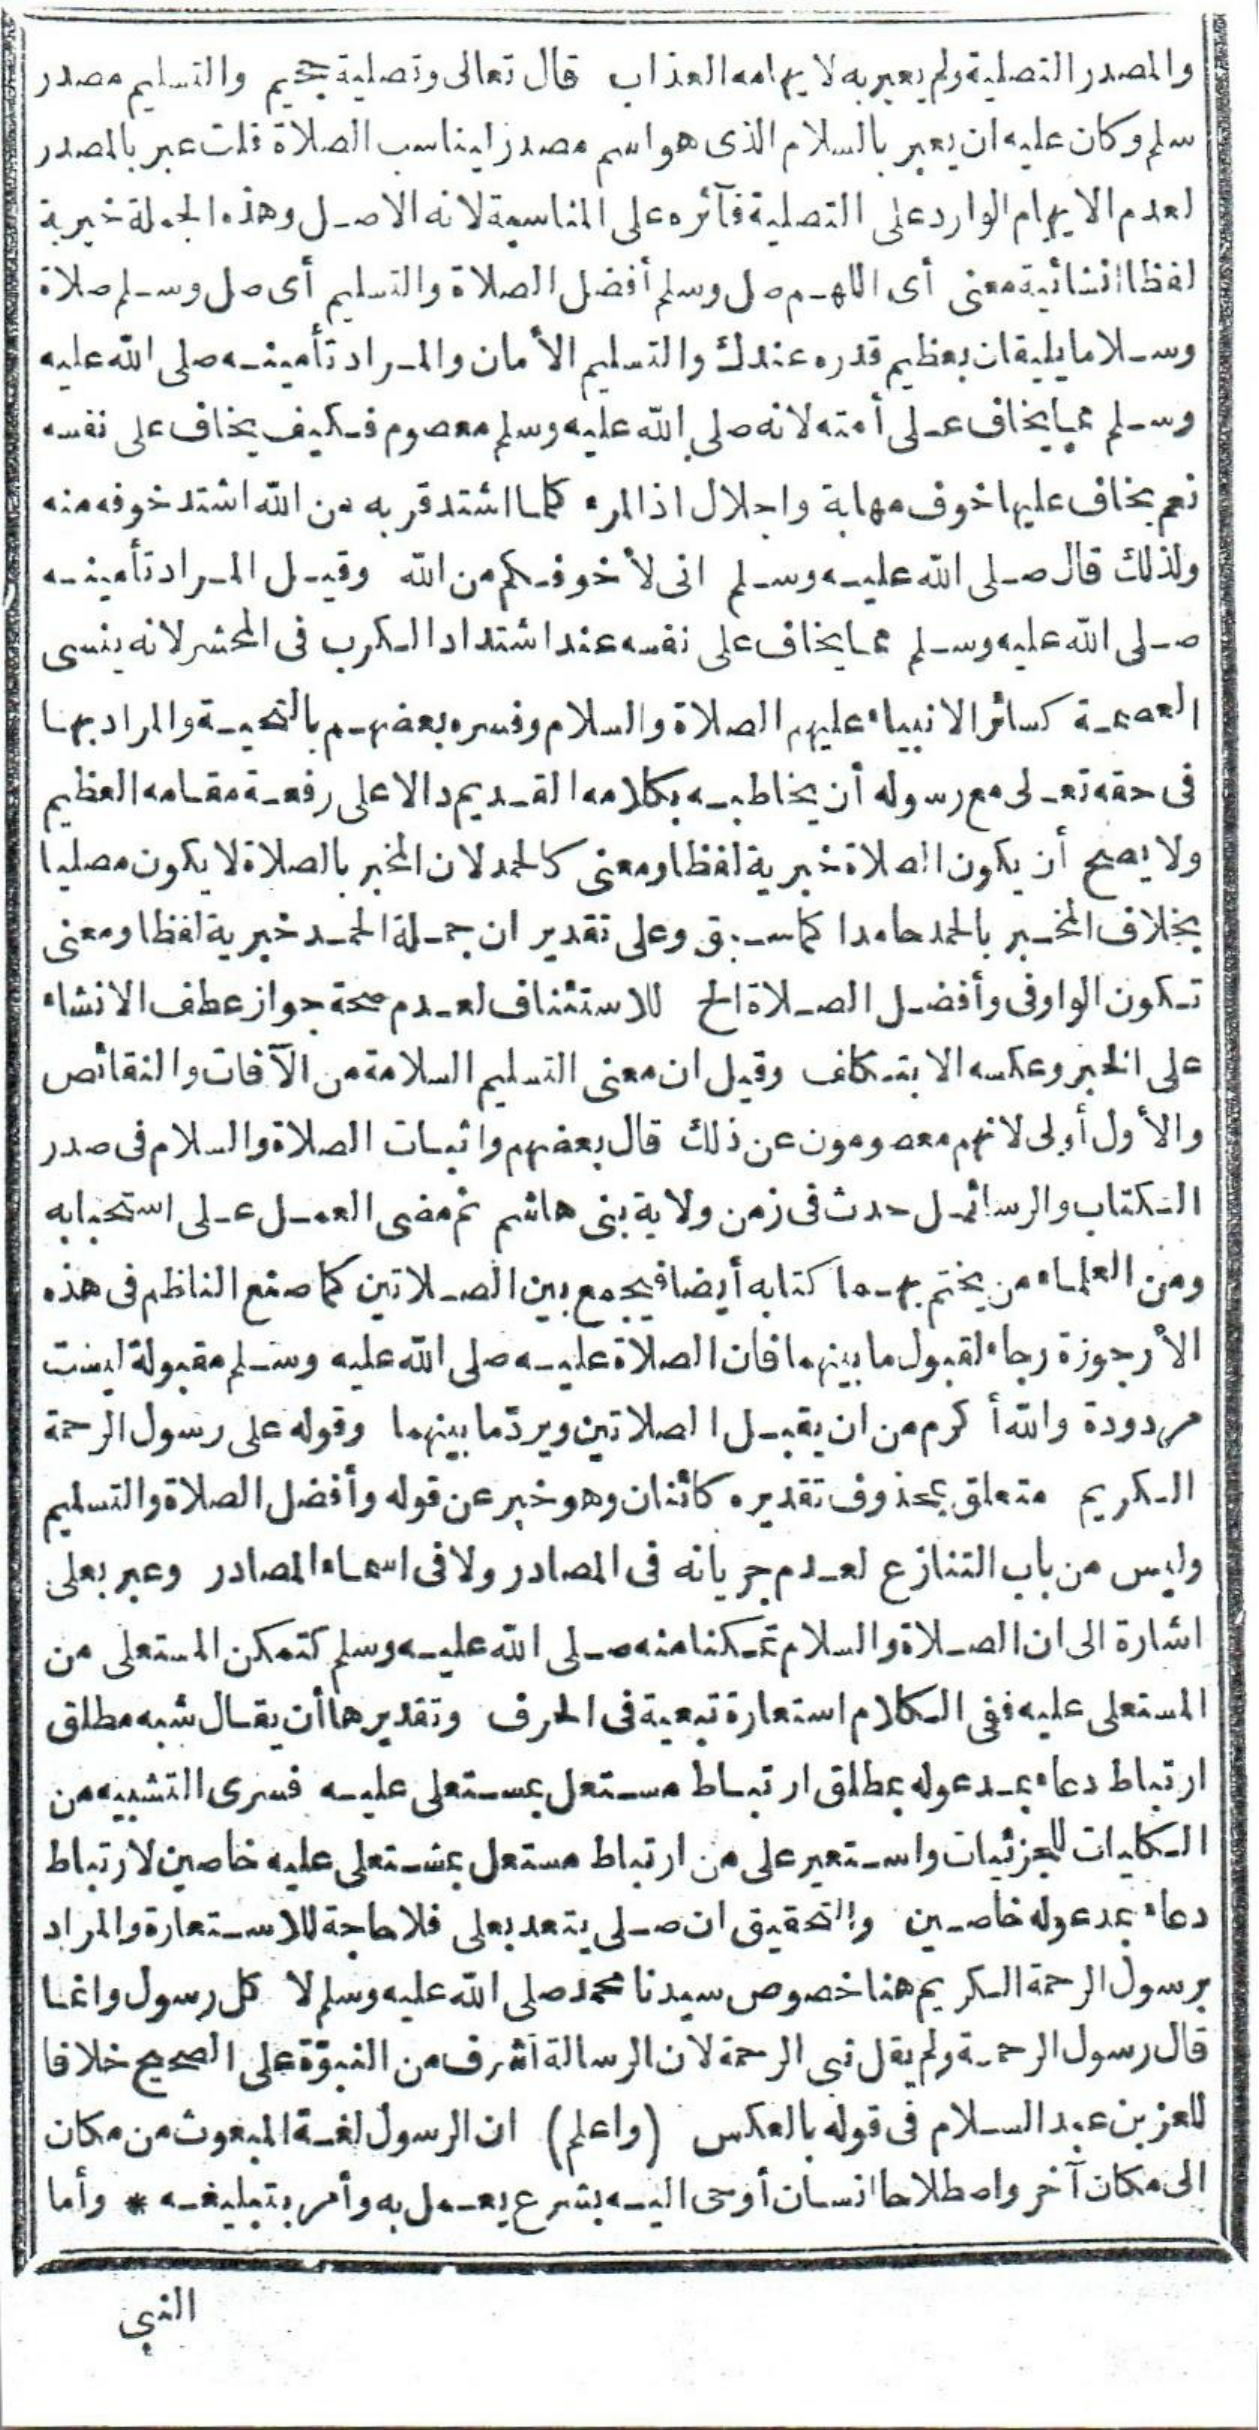 والمصدر التصلية ولم يعبر به لايهامه العذاب قال تعالى وتصلية جحيم والتسليم مصدر
سلم وكان عليه ان يعبر بالسلام الذى هو اسم مصدر ليناسب الصلاة قلت عبر بالمصدر
لعدم الايهام الوارد على التصلية فآثره على المناسبة لانه الاصل وهذه الجملة خبرية
لفظا انشائية معنى أى اللهم صل وسلم أفضل الصلاة والتسليم أى صل وسلم صلاة
وسلاما يليقان بعظيم قدره عندك والتسليم الأمان والمراد تأمينه صلى الله عليه
وسلم مما يخاف على أمته لانه صلى الله عليه وسلم معصوم فكيف يخاف على نفسه
نعم يخاف عليها خوف مهابة واجلال اذ المرء كلما اشتد قربه من الله اشتد خوفه منه
ولذلك قال صلى الله عليه وسلم انى لأخوفكم من الله وقيل المراد تأمينه
صلى الله عليه وسلم مما يخاف على نفسه عند اشتداد الكرب فى المحشر لانه ينسى
العصمة كسائر الانبياء عليهم الصلاة والسلام وفسره بعضهم بالتحية والمراد بها
فى حقه تعالى مع رسوله أن يخاطبه بكلامه القديم دالا على رفعة مقامه العظيم
ولا يصح أن يكون الصلاة خبرية لفظا ومعنى كالحمد لان المخبر بالصلاة لا يكون مصليا
بخلاف المخبر بالحمد حامدا كما سبق وعلى تقدير ان جملة الحمد خبرية لفظا ومعنى
تكون الواو فى وأفضل الصلاة الخ للاستئناف لعدم صحة جواز عطف الانشاء
على الخبر وعكسه الا بتكلف وقيل ان معنى التسليم السلامة من الآفات والنقائص
والأول أولى لانهم معصومون عن ذلك قال بعضهم واثبات الصلاة والسلام فى صدر
الكتاب والرسائل حدث فى زمن ولاية بنى هاشم ثم مضى العمل على استحبابه
ومن العلماء من يختم بهما كتابه أيضا فيجمع بين الصلاتين كما صنع الناظم فى هذه
الأرجوزة رجاء لقبول ما بينهما فان الصلاة عليه صلى الله عليه وسلم مقبولة ليست
مردودة والله أكرم من ان يقبل الصلاتين ويردّ ما بينهما وقوله على رسول الرحمة
الكريم متعلق بمحذوف تقديره كائنان وهو خبر عن قوله وأفضل الصلاة والتسليم
وليس من باب التنازع لعدم جريانه فى المصادر ولا فى اسماء المصادر وعبر بعلى
اشارة الى ان الصلاة والسلام تمكنا منه صلى الله عليه وسلم كتمكن المستعلى من
المستعلى عليه ففى الكلام استعارة تبعية فى الحرف وتقديرها أن يقال شبه مطلق
ارتباط دعاء بمدعو له بمطلق ارتباط مستعل بمستعلى عليه فسرى التشبيه من
الكليات للجزئيات واستعير على من ارتباط مستعل بمستعلى عليه خاصين لارتباط
دعاء بمدعو له خاصين والتحقيق ان صلى يتعد بعلى فلا حاجة للاستعارة والمراد
برسول الرحمة الكريم هنا خصوص سيدنا محمد صلى الله عليه وسلم لا كل رسول وانما
قال رسول الرحمة ولم يقل نبى الرحمة لان الرسالة أشرف من النبوّة على الصحيح خلافا
للعز بن عبد السلام فى قوله بالعكس (واعلم) ان الرسول لغة المبعوث من مكان
الى مكان آخر واصطلاحا انسان أوحى اليه بشرع يعمل به وأمر بتبليغه * وأما
النبى